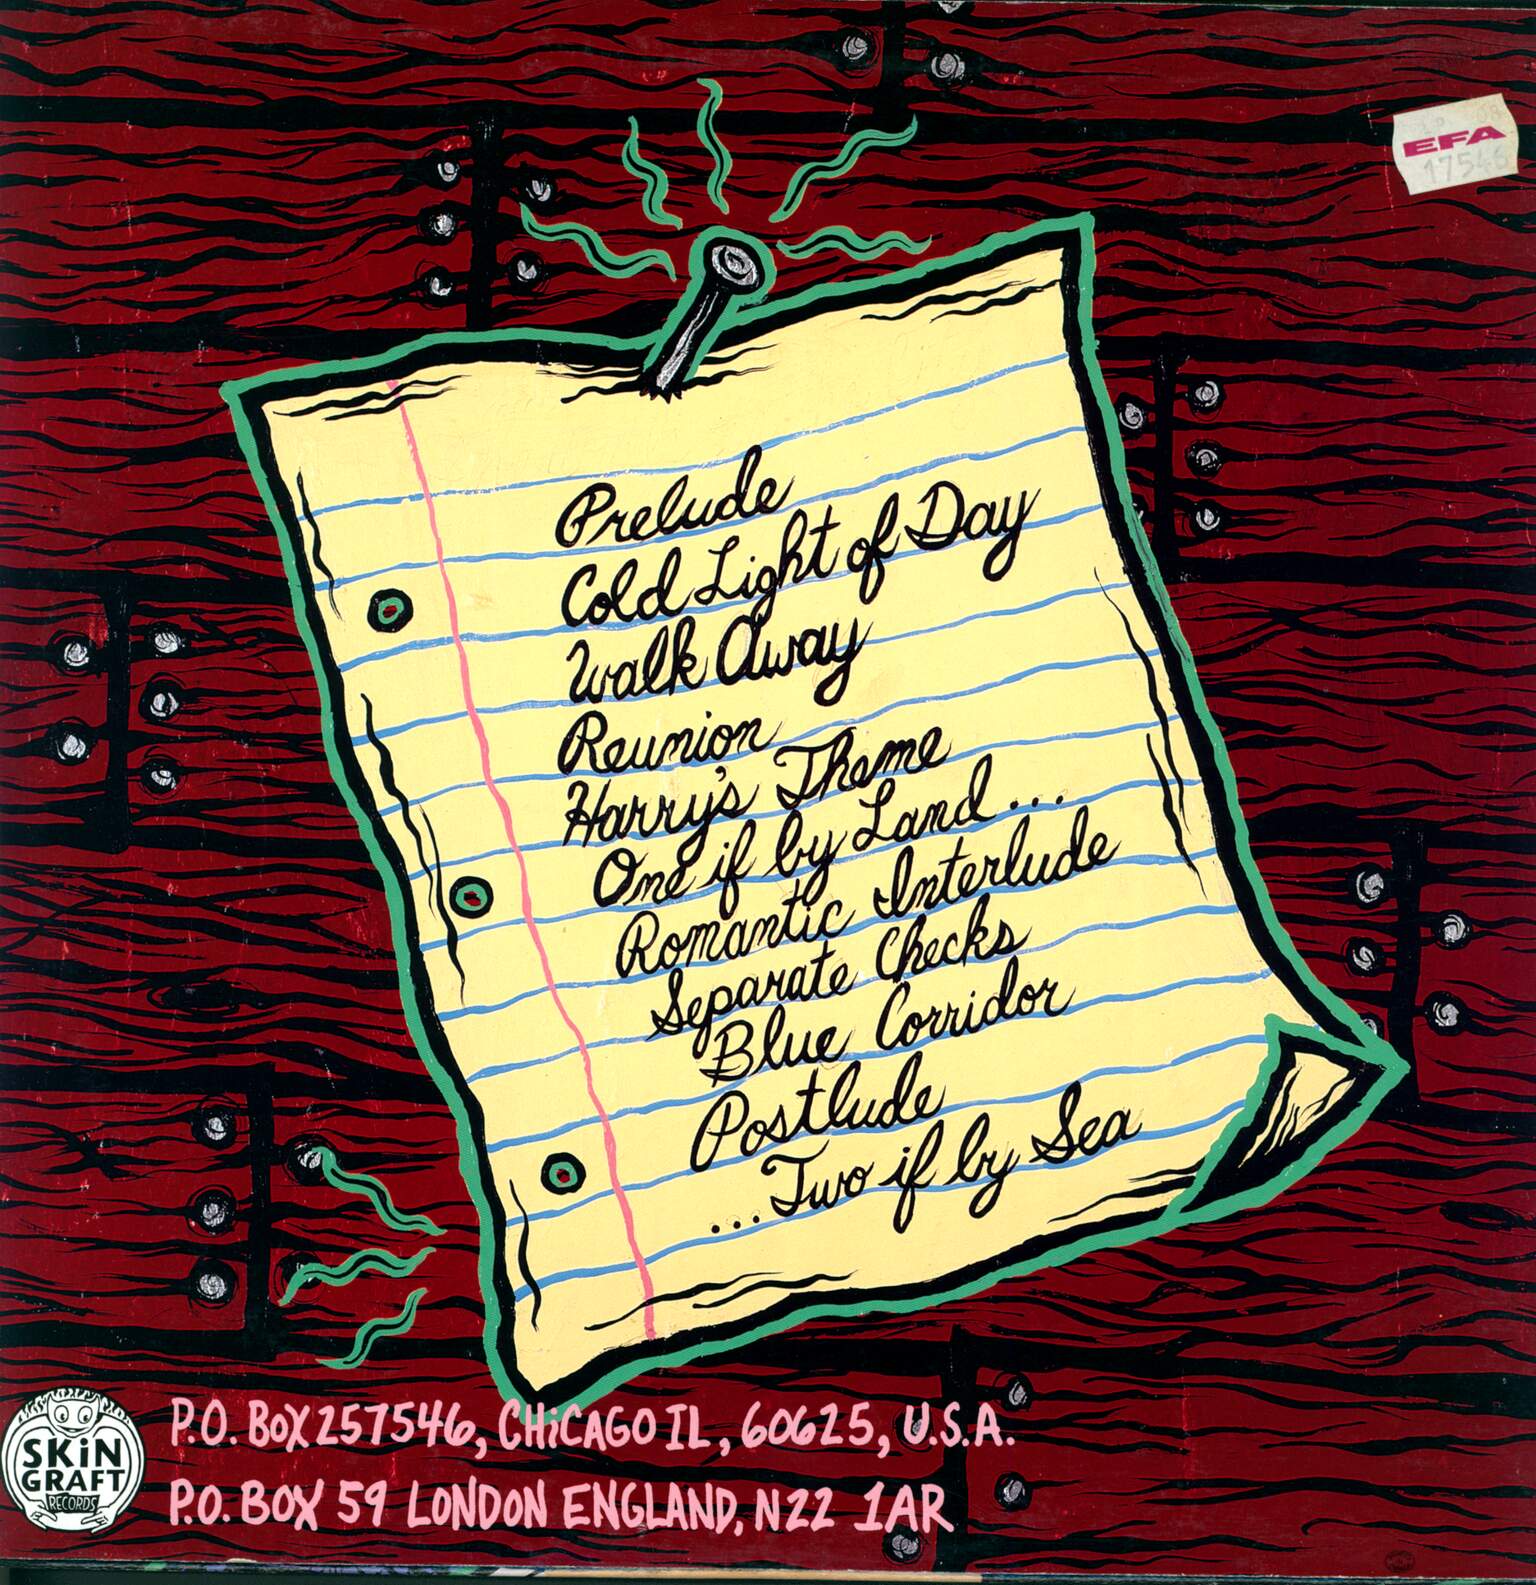 EFA
Prelude
Cold Light of Day
Walk Away
Reunion
Harry's Theme
One if by Land ...
Romantic Interlude
Separate Checks
Blue Corridor
Postlude
...Two if by Sea
SKiN
GRAFT
RECORDS
P.O. BOX 257546, CHiCAGO IL, 60625, U.S.A.
P.O. BOX 59 LONDON ENGLAND, N22 1AR